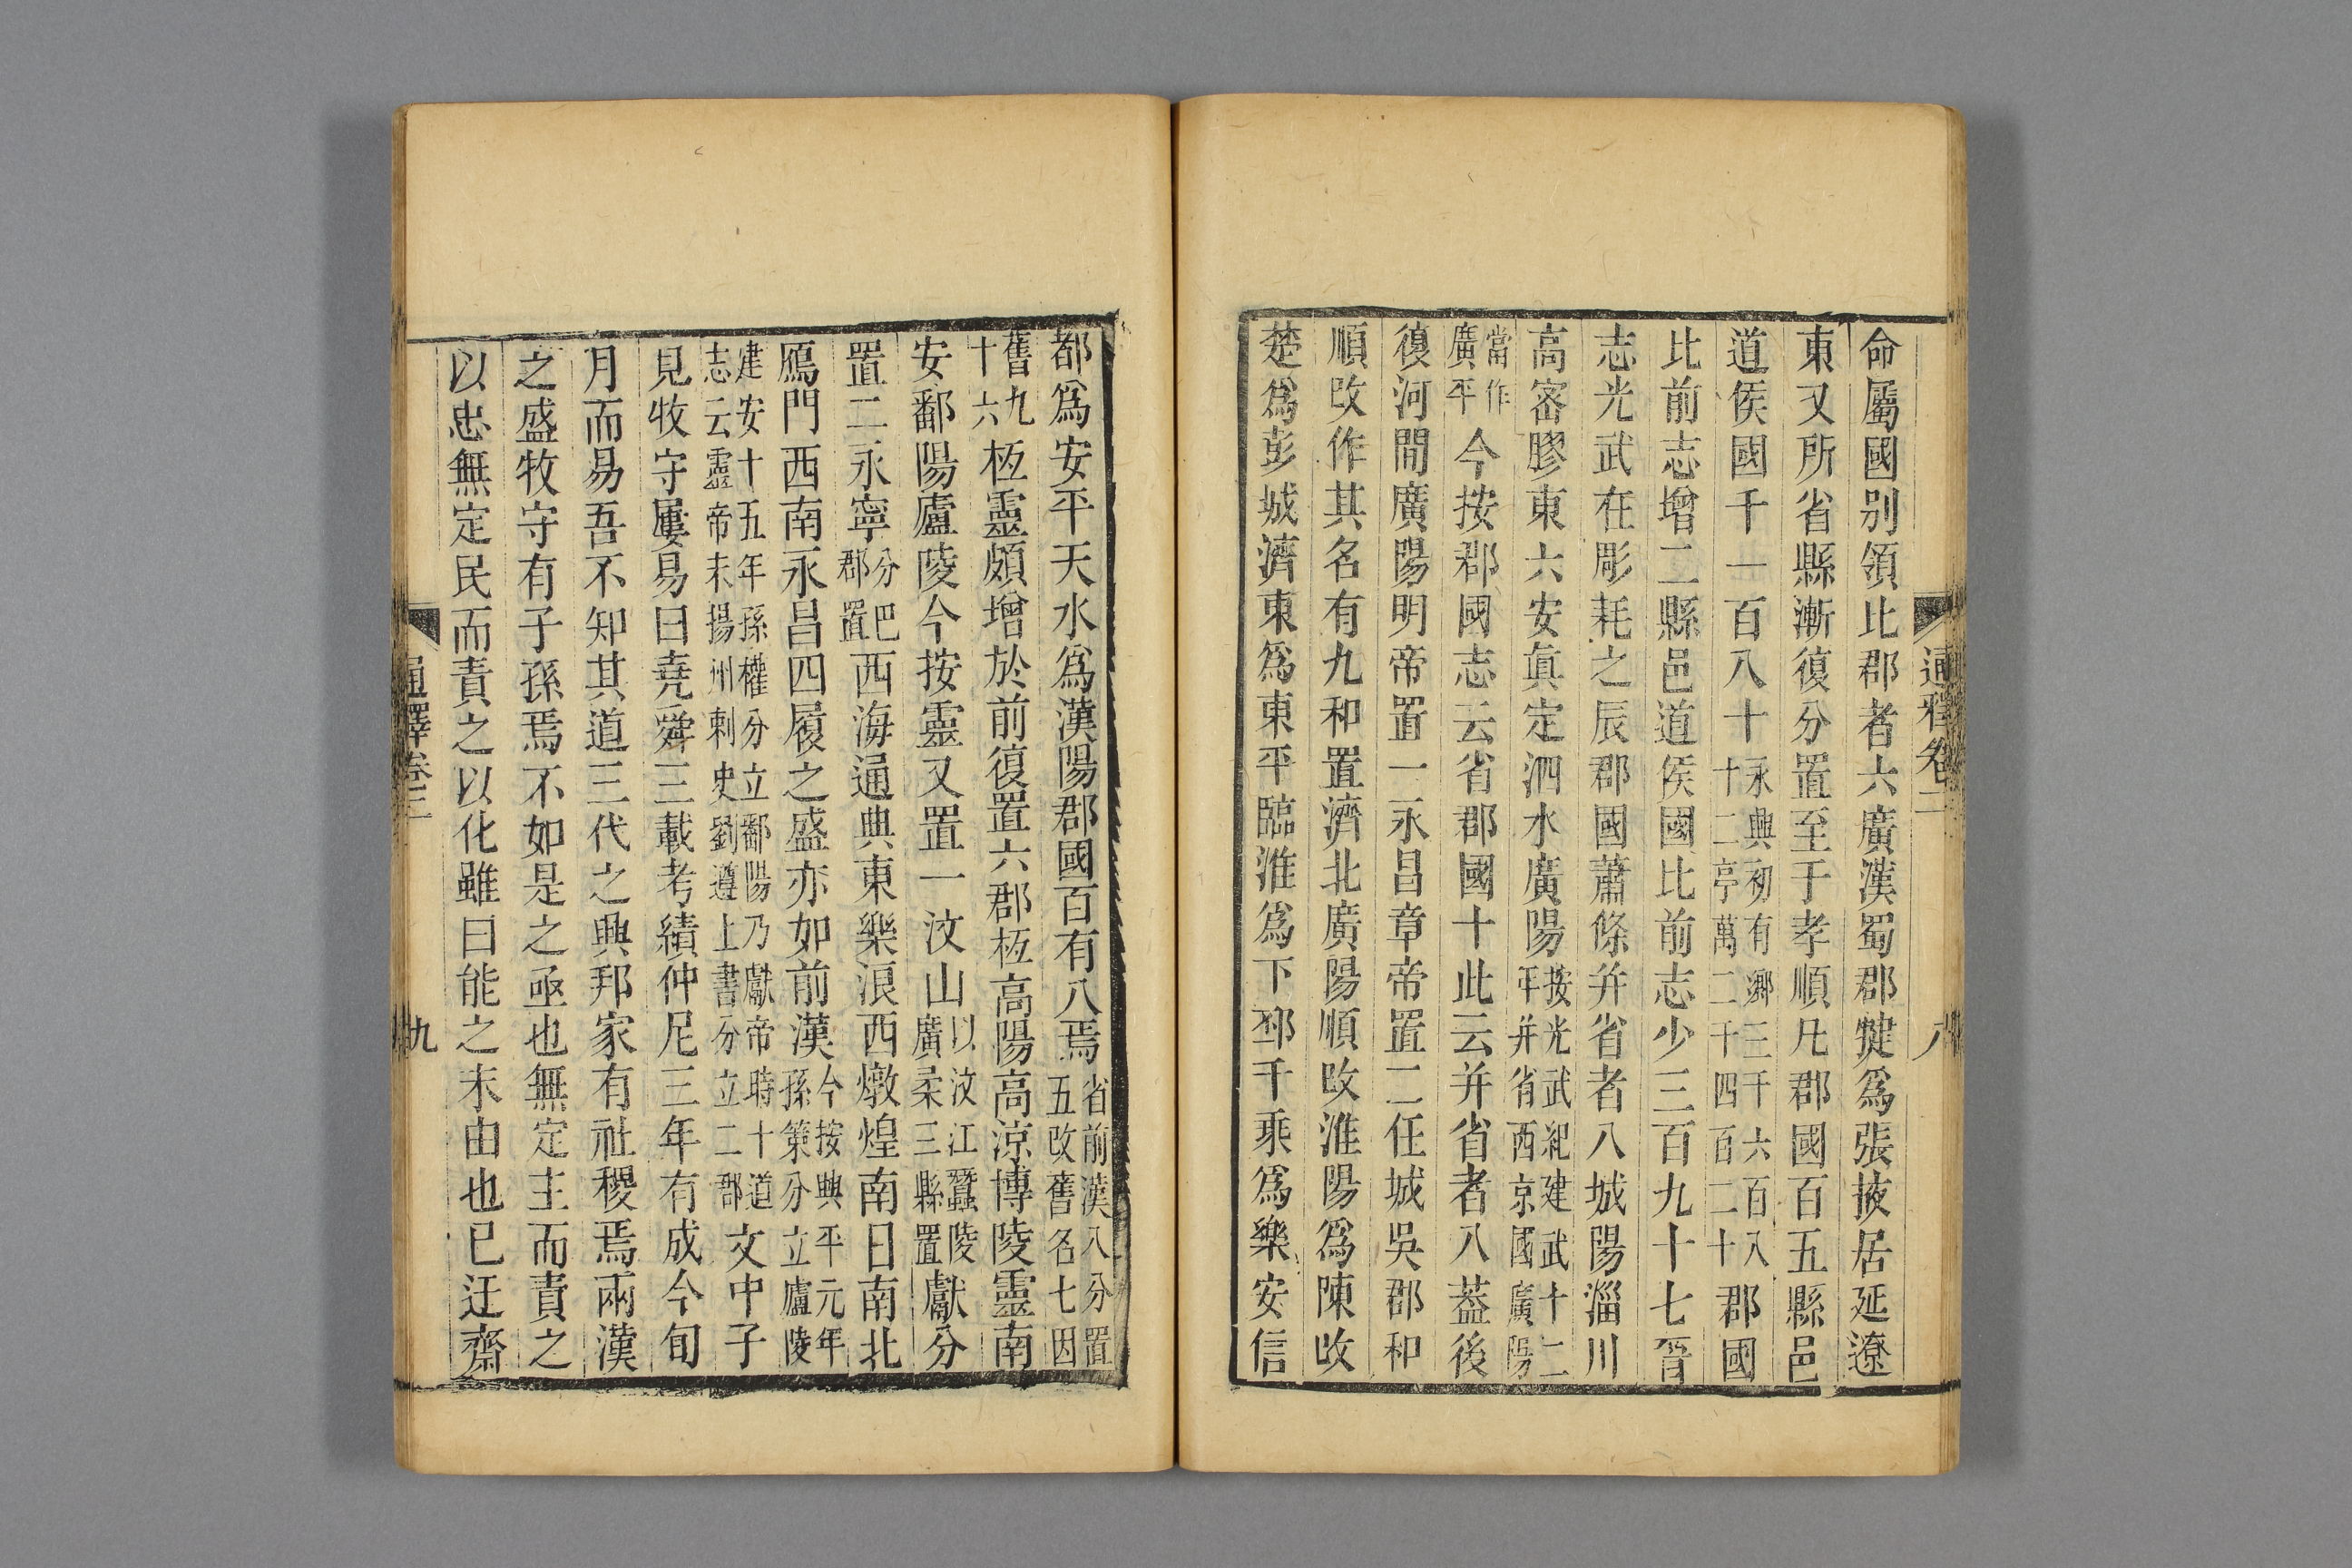 命屬國别領比郡者六廣漢蜀郡犍爲張掖居延遼
東又所省縣漸復分置至于孝順凡郡國百五縣邑
道侯國千一百八十永興初有鄉三千六百八十二亭萬二千四百二十郡國
比前志增二縣邑道侯國比前志少三百九十七晉
志光武在彫耗之辰郡國蕭條并省者八城陽淄川
高密膠東六安眞定泗水廣陽按光武紀建武十二年并省西京國廣陽
當作廣平今按郡國志云省郡國十此云并省者八葢後
復河間廣陽明帝置一永昌章帝置二任城吳郡和
順改作其名有九和置濟北廣陽順改淮陽爲陳改
楚爲彭城濟東爲東平臨淮爲下邳千乘爲樂安信
通釋卷二
八
都爲安平天水爲漢陽郡國百有八焉省前漢八分置五改舊名七因
舊九十六桓靈頗增於前復置六郡桓高陽高涼博陵靈南
安鄱陽廬陵今按靈又置一汶山以汶江蠶陵廣柔三縣置獻分
置二永寧分巴郡置西海通典東樂浪西燉煌南日南北
鴈門西南永昌四履之盛亦如前漢今按興平元年孫策分立廬陵
建安十五年孫權分立鄱陽乃獻帝時十道志云靈帝末揚州刺史劉遵上書分立二郡文中子
見牧守屢易曰堯舜三載考績仲尼三年有成今旬
月而易吾不知其道三代之興邦家有社稷焉兩漢
之盛牧守有子孫焉不如是之亟也無定主而責之
以忠無定民而責之以化雖曰能之末由也已迂齋
通釋卷二
九